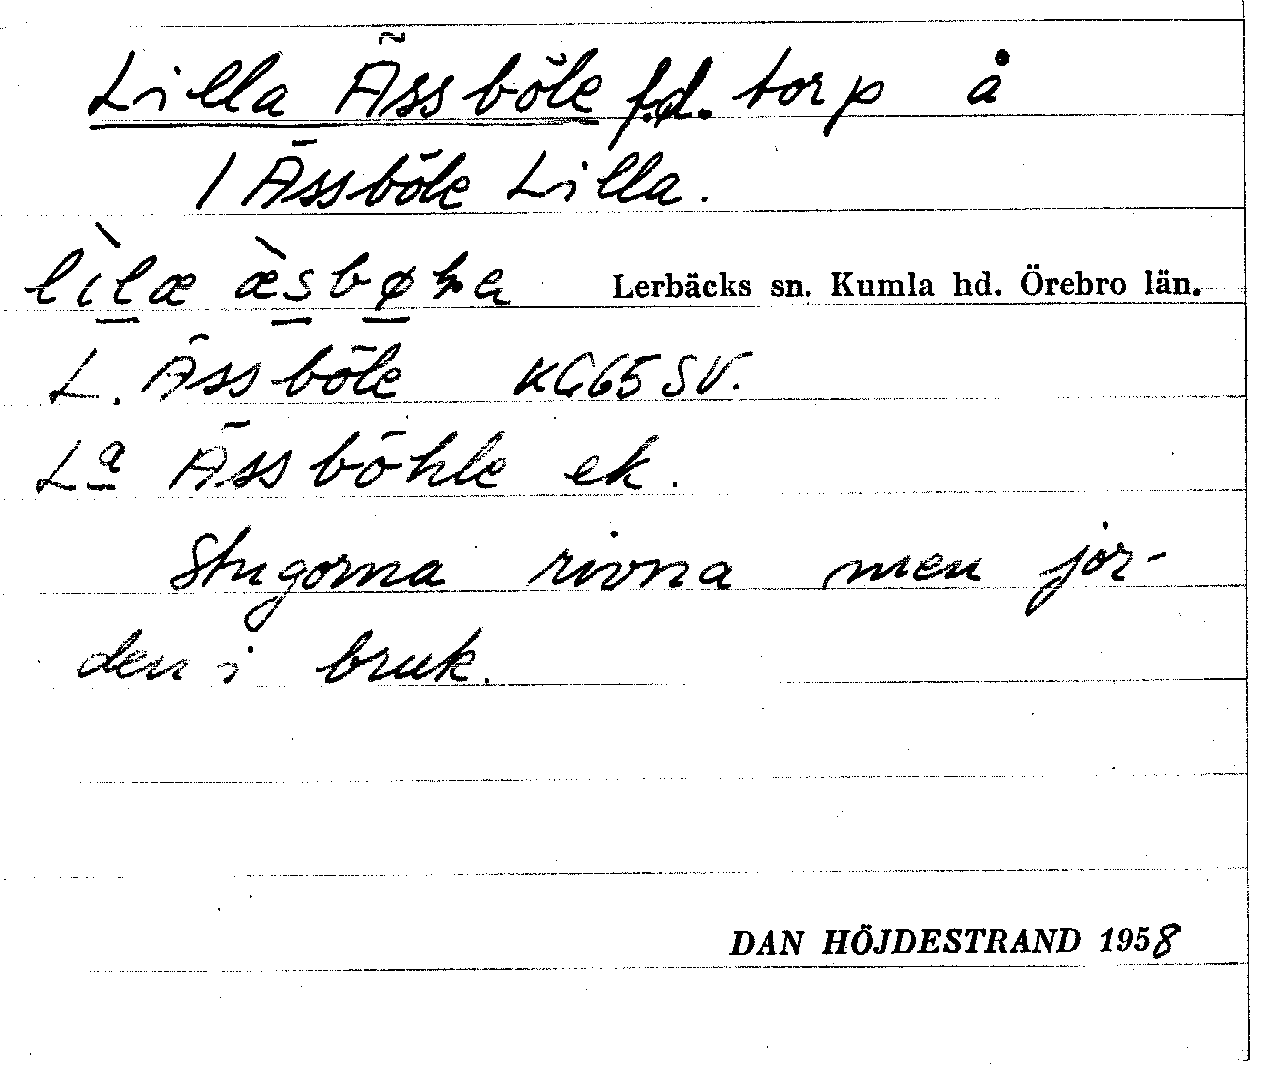 Lilla Ässböle f.d. torp å
1 Ässböle Lilla.
Lerbäcks sn. Kumla hd. Örebro län.
L. Ässböle KG65SV.
La Ässböhle ek.
Stugorna rivna men jor-
den i bruk.
DAN HÖJDESTRAND 1958